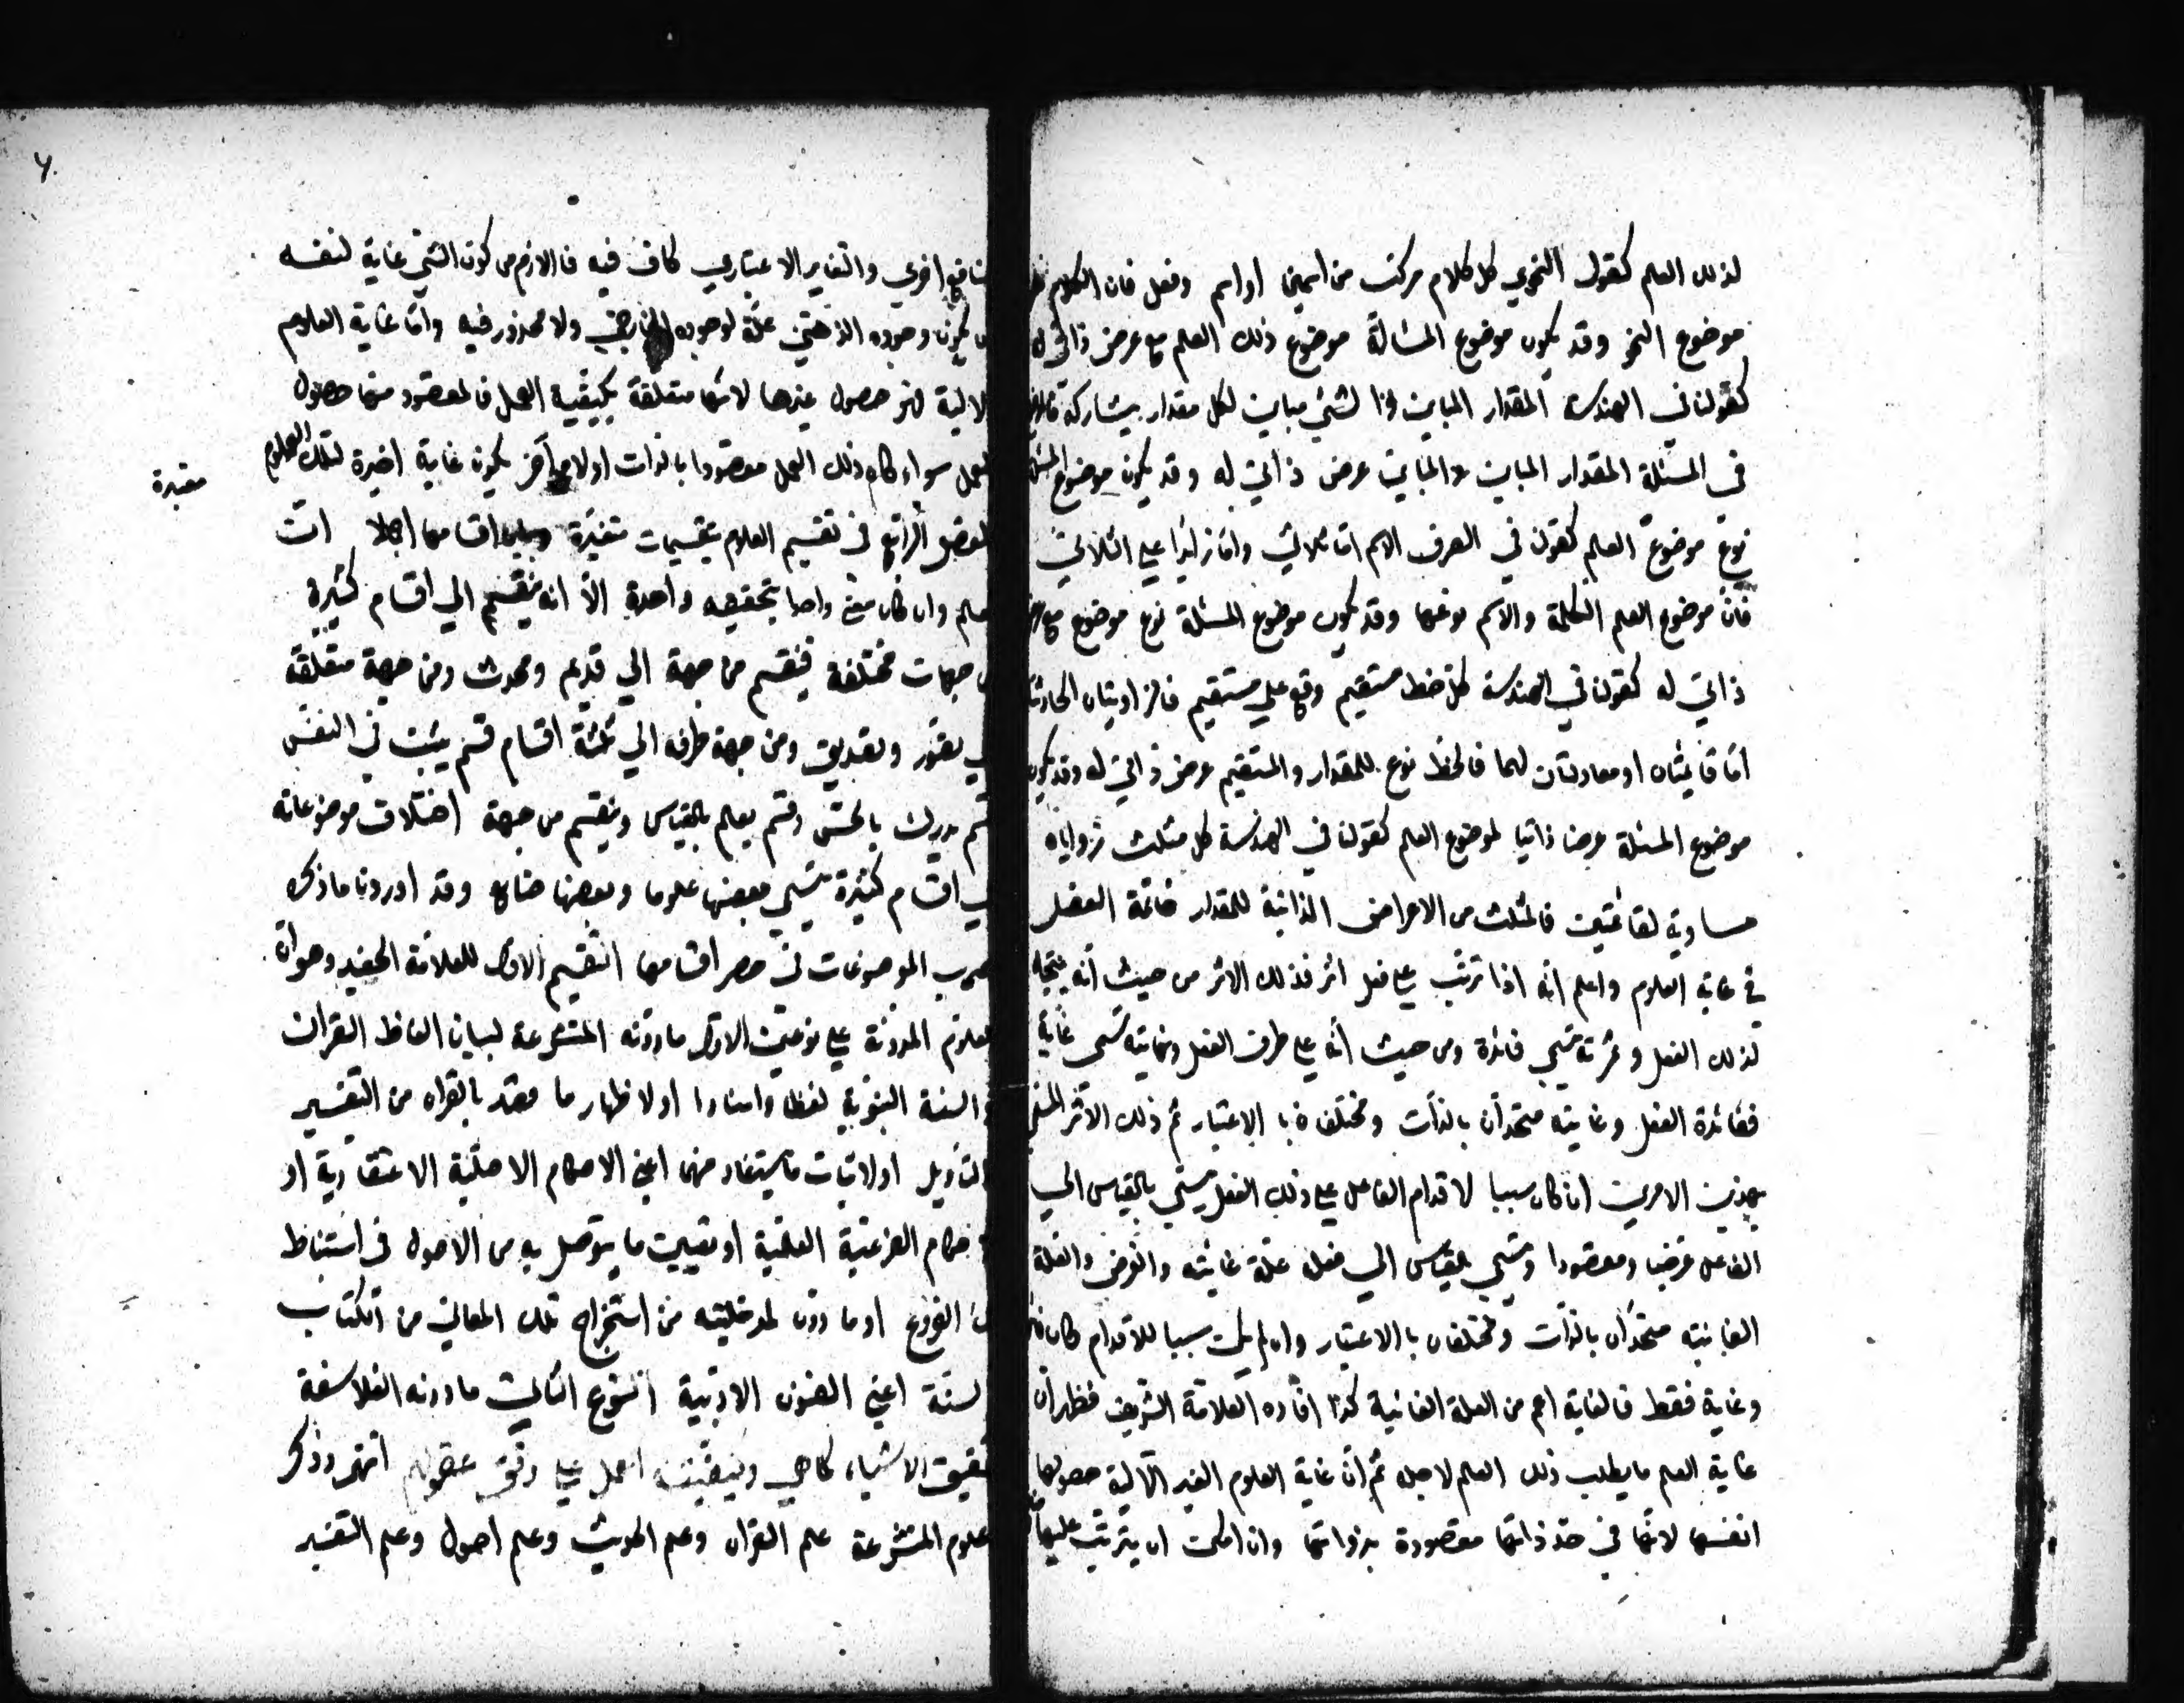 لذلك العلم كقول النحوي كل كلام مركب من اسمين او اسم وفعل فان الكلام
موضوع النحو وقد يكون موضوع المسألة موضوع ذلك العلم مع عرض ذاتي له
كقولنا في الهندسة المقدار المباين لشئ مباين لكل مقدار يشاركه
في المسئلة المقدار المباين والمباين عرض ذاتي له وقد يكون موضوع
نوع موضوع العلم كقولنا في الصرف الاسم اما ثلاثي واما زايدا على الثلاثي
فان موضوع العلم الكلمة والاسم نوعها وقد يكون موضوع المسئلة نوع موضوع مع
ذاتي له كقولنا في الهندسة كل خط مستقيم وقع على مستقيم فالزاويتان الحادثتان
اما قائمتان او معادلتان لهما فالخط نوع للمقدار والمستقيم عرض ذاتي له وقد يكون
موضوع المسئلة عرضا ذاتيا لموضوع العلم كقولنا في الهندسة كل مثلث زواياه
مساوية لقائمتين فالمثلث من الاعراض الذاتية للمقدار خاتمة الفصل
في غاية العلوم واعلم انه اذا ترتب على فعل اثر فذلك الاثر من حيث انه نتيجة
لذلك الفعل وثمرته تسمي فائدة ومن حيث انه على طرف الفعل ونهايته تسمى غاية
ففائدة الفعل وغايته متحدان بالذات ومختلفان بالاعتبار ثم ذلك الاثر المسمى
بهذين الامرين ان كان سببا لاقدام الفاعل على ذلك الفعل يسمي بالقياس الي
الفاعل غرضا ومقصودا وتسمي بالقياس الي فعله علة غائية والغرض والعلة
الغائية متحدان بالذات ومختلفان بالاعتبار وان لم يكن سببا للاقدام كان
وغاية فقط فالغاية اعم من العلة الغائية كذا افاده العلامة الشريف فظهر ان
غاية العلم ما يطلب ذلك العلم لاجله ثم ان غاية العلوم الغير الآلية حصولها
انفسها لانها في حد ذاتها مقصودة بذواتها وان امكن ان يترتب عليها
منافع اخري والتغاير الاعتباري كاف فيه فاللازم من كون الشئ غاية لنفسه
يكون وجوده الذهني علة لوجوده الخارجي ولا محذور فيه واما غاية العلوم
الالية فهو حصول غيرها لانها متعلقة بكيفية العمل فالمقصود منها حصول
العمل سواء كان ذلك العمل مقصودا بالذات او لامر آخر يكون غاية اخيرة لتلك العلوم
الفصل الرابع في تقسيم العلوم بتقسيمات معتبرة وبيان اقسامها اجمالا ان
معتبرة
العلم وان كان معنى واحدا بحقيقه واحدة الا انه ينقسم الي اقسام كثيرة
من جهات مختلفة فينقسم من جهة الي قديم ومحدث ومن جهة متعلقه
الي تصور وتصديق ومن جهة طرقه الي ثلثة اقسام قسم يثبت في النفس
وقسم يدرك بالحس وقسم يعلم بالقياس وينقسم من جهة اختلاف موضوعاته
الي اقسام كثيرة تسمي بعضها علوما وبعضها صنايع وقد اوردنا ما ذكره
الموضوعات في حصر اقسامها التقسيم الاول للعلامة الحفيد وهو ان
العلوم المدونة على نوعين الاول ما دونه المتشرعة لبيان الفاظ القران
والسنة النبوية لفظا واسنادا او لاظهار ما قصد بالقران من التفسير
والتأويل او لاثبات ما يستفاد منها اعني الاحكام الاصلية الاعتقادية او
الاحكام الفرعية العملية او تعيين ما يتوصل به من الاصول في استنباط
تلك الفروع او ما دون لمدخليته من استخراج تلك المعاني من الكتاب
والسنة اعني الفنون الادبية النوع الثاني ما دونه الفلاسفة
لتحقيق الاشياء كما هي وكيفية العمل على وفق عقولهم انتهى وذكر
علوم المتشرعة علم القران وعلم الحديث وعلم اصول وعلم التفسير